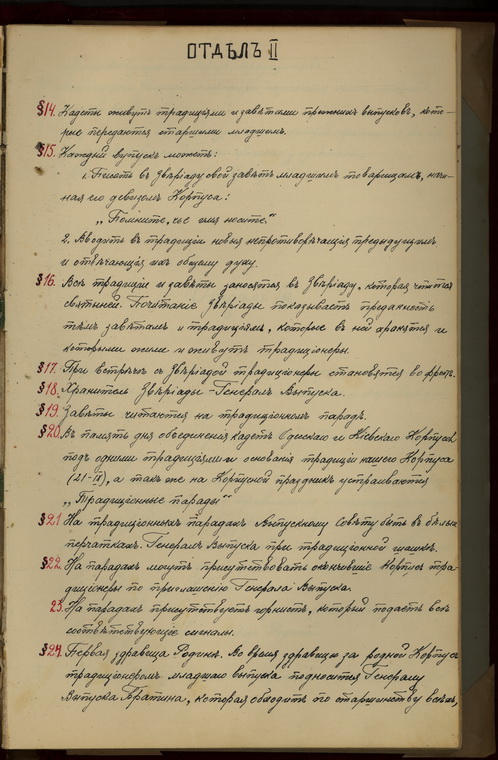 ОТДѢЛЪ II
§14. Кадеты живутъ традицiями и завѣтами прежнихъ выпусковъ, кото-
рые передаются старшими младшимъ.
§15. Каждый выпускъ можетъ:
1. Писать въ Звѣрiаду свой завѣтъ младшимъ товарищамъ, начи-
ная его девизомъ Корпуса:
„Помните, чье имя носите."
2. Вводить въ традицiи новыя непротиворѣчащiя предыдущимъ
и отвѣчающiя ихъ общему духу.
§16. Всѣ традицiи и завѣты заносятся въ Звѣрiаду, которая чтится
святыней. Почитанiе Звѣрiады показываетъ преданность
тѣмъ завѣтамъ и традицiямъ, которые въ ней хранятся и
которыми жили и живутъ традицiонеры.
§17. При встрѣчѣ съ Звѣрiадой традицiонеры становятся во фронтъ.
§18. Хранитель Звѣрiады - Генералъ Выпуска.
§19. Завѣты читаются на традицiонномъ парадѣ.
§20. Въ память дня объединенiя кадетъ Одесскаго и Кiевскаго Корпусовъ
подъ одними традицiями и основанiя традицiи нашего Корпуса
(21-IV), а такъ же на Корпусной праздникъ устраиваются
„Традицiонные парады"
§21. На традицiонныхъ парадахъ Выпускному Совѣту быть въ бѣлыхъ
перчаткахъ. Генералъ Выпуска при традицiонной шашкѣ.
§22. На парадахъ могутъ присутствовать окончившiе Корпусъ тра-
дицiонеры по приглашенiю Генерала Выпуска.
23. На парадахъ присутствуетъ горнистъ, который подаетъ всѣ
соотвѣтствующiе сигналы.
§24. Первая здравица Родинѣ. Во время здравицы за родной Корпусъ
традицiонеромъ младшаго выпуска подносится Генералу
Выпуска Братина, которая обходитъ по старшинству всѣхъ,